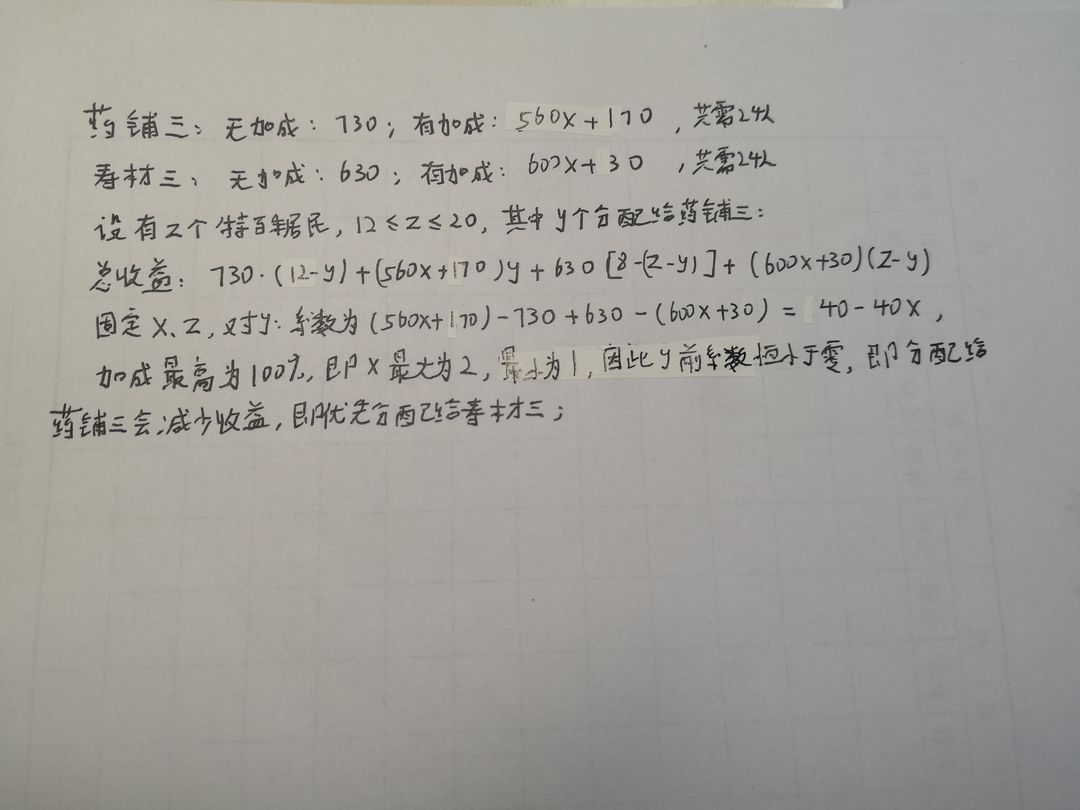 药铺三: 无加成: 730; 有加成: 560x+170, 共需24人
寿材三: 无加成: 630; 有加成: 600x+30, 共需24人
设有z个特百居民, 12≤z≤20, 其中y个分配给药铺三:
总收益: 730·(12-y)+(560x+170)y+630[8-(z-y)]+(600x+30)(z-y)
固定x、z, 对y: 系数为(560x+170)-730+630-(600x+30)=40-40x,
加成最高为100%, 即x最大为2, 最小为1, 因此y前系数恒小于零, 即分配给
药铺三会减少收益, 即优先分配给寿材三;